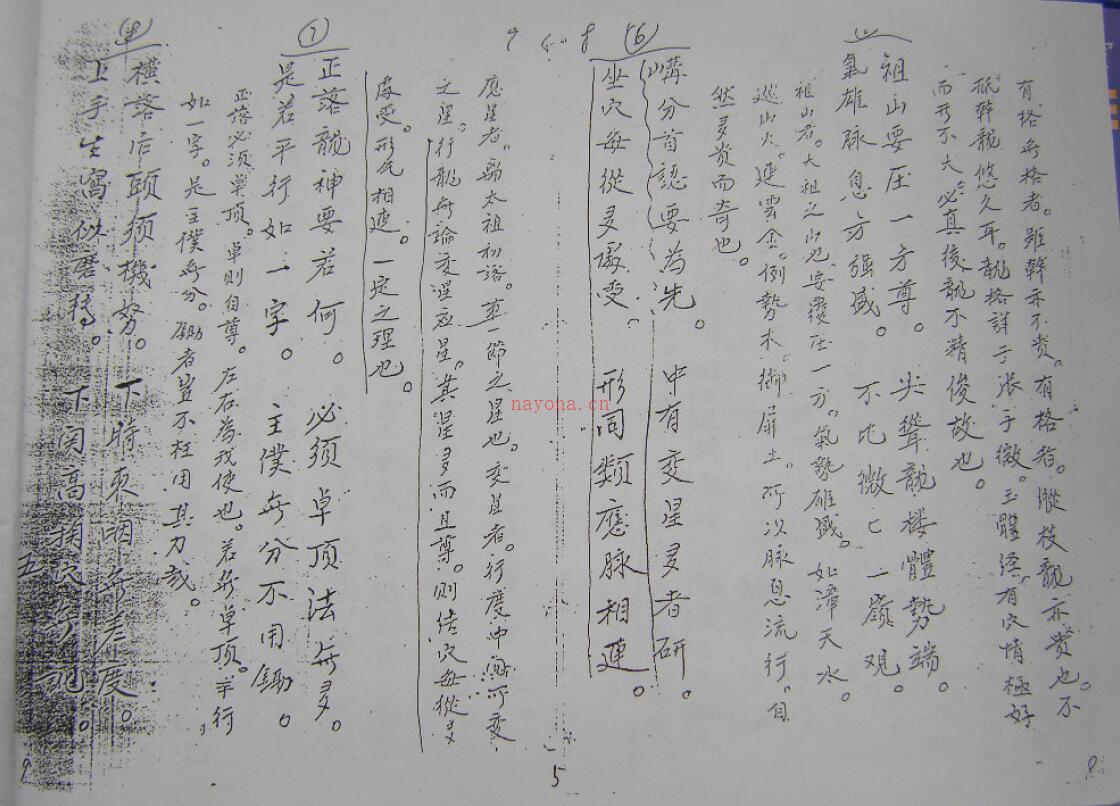 有格無格者。雖幹亦不贵。有格者。縱枝龍亦贵也。不
孤幹龍悠久耳。龍格詳于张子微。玉體经。有穴情極好
而形不大。必真後龍不精俊故也。
祖山要压一方尊。尖聳龍楼體勢端。
氣雄脉息方强盛。不比微匕一嶺观。
祖山者。大祖之山也。要覆压一方。氣勢雄盛。如漳天水。
巡山火。連雲金。倒勢木。御屏土。所以脉息流行。自
然多贵而奇也。
(6)
嶙分首認要為先。中有变星多者研。
坐穴每從多處受。形同類應脉相連。
應星者。為太祖初落。第一節之星也。变星者。行度中所可变
之星。行龍無論变星应星。其星多而且尊。則结穴每從多
處受。形气相連。一定之理也。
(7)
正落龍神要若何。必须卓顶法無多。
是若平行如一字。主僕無分不用鋤。
正落必须卓顶。卓則自尊。左右為我使也。若無卓顶。平行
如一字。是主僕無分。鋤者岂不枉用其力哉。
(8)
横落后頭须機努。下時
上手生窩似磨转。下関高
五
9
5
8
nayona.cn